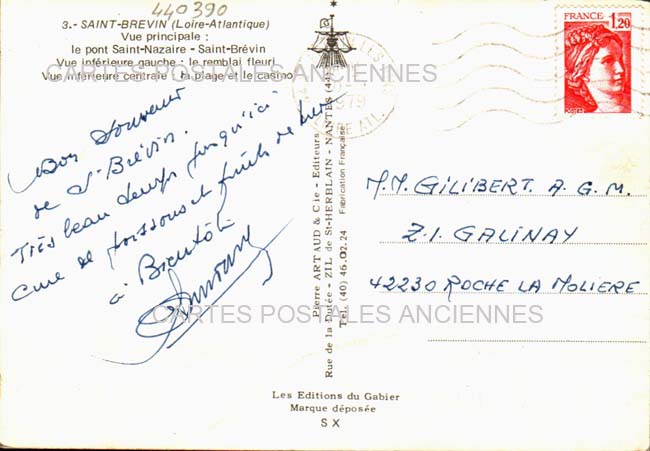 440390
3.- SAINT-BREVIN (Loire-Atlantique)
Vue principale :
le pont Saint-Nazaire - Saint-Brévin
Vue inférieure gauche : le remblai fleuri
Vue inférieure centrale : la plage et le casino
CARTES POSTALES ANCIENNES
Bon Souvenir
de St Brévin.
Très beau temps jusqu'ici
cure de poissons et fruits de mer
à Bientôt
Pierre ARTAUD & Cie - Editeurs
Rue de la Dutée - ZIL de St-HERBLAIN - NANTES (44)
Tel. (40) 46.02.24 Fabrication Française
1979
FRANCE 1,20
M.M. GILIBERT A.G.M.
Z.I. GALINAY
42230 ROCHE LA MOLIERE
CARTES POSTALES ANCIENNES
Les Editions du Gabier
Marque déposée
S X